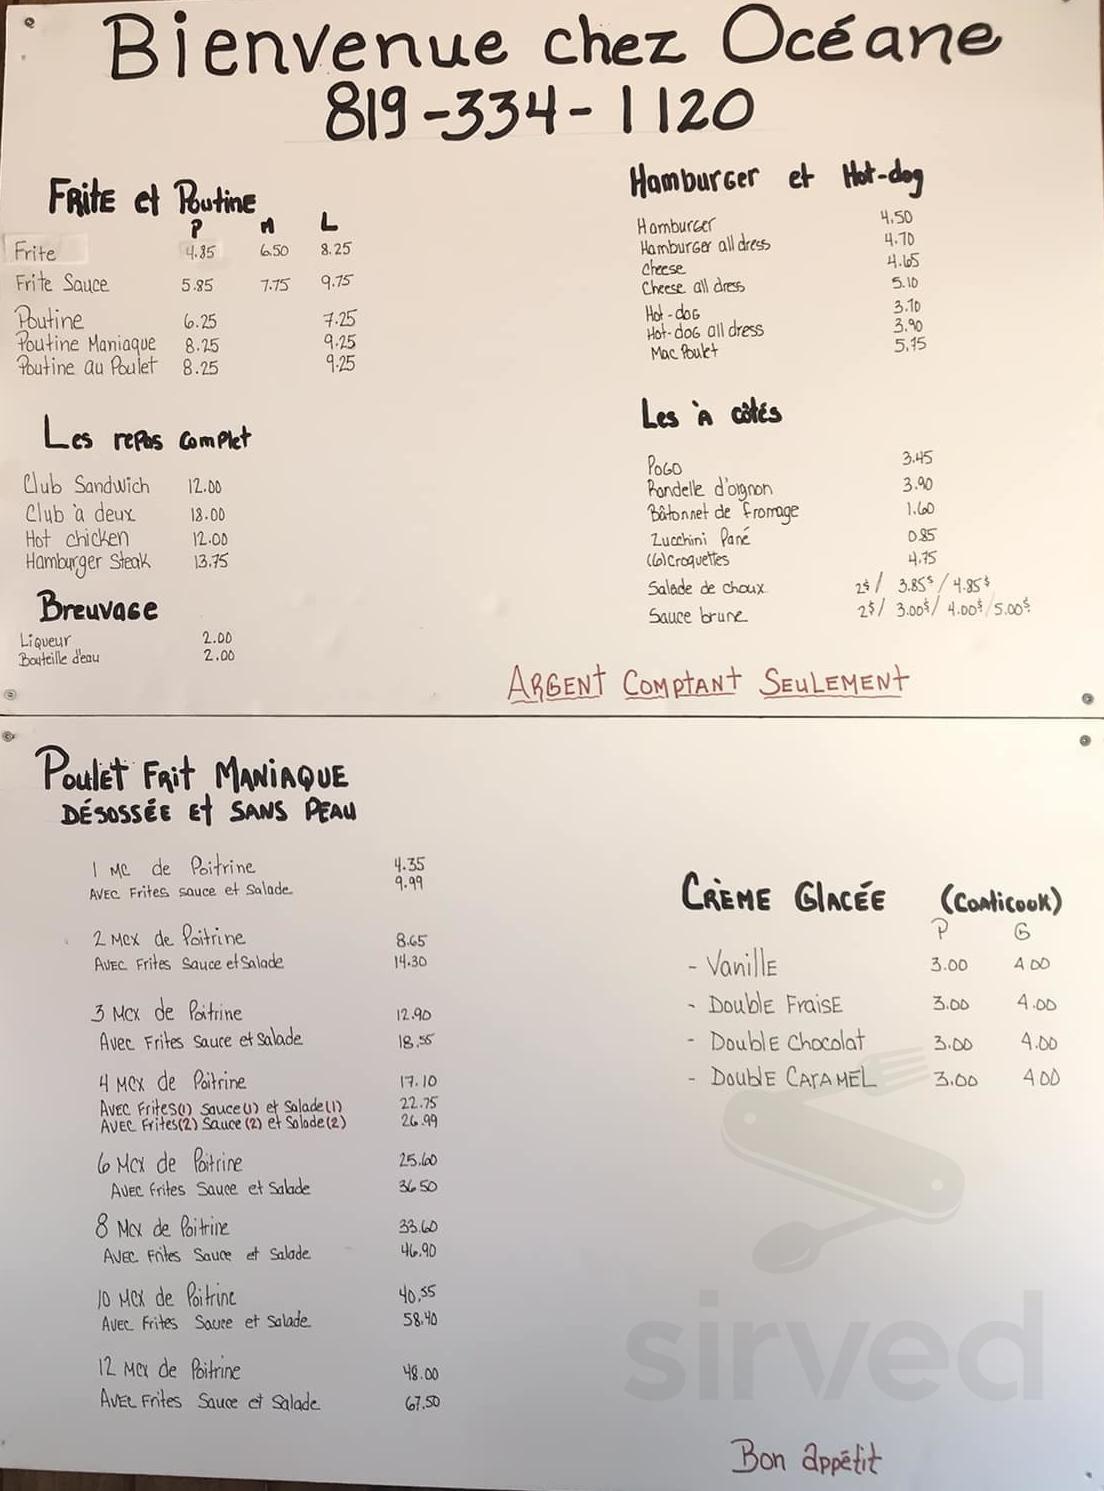 Bienvenue chez Océane
819-334-1120
Frite et Poutine
P M L
Frite 4.85 6.50 8.25
Frite Sauce 5.85 7.75 9.75
Poutine 6.25 7.25
Poutine Maniaque 8.25 9.25
Poutine au Poulet 8.25 9.25
Les repas complet
Club Sandwich 12.00
Club à deux 18.00
Hot chicken 12.00
Hamburger Steak 13.75
Breuvage
Liqueur 2.00
Bouteille d'eau 2.00
Hamburger et Hot-dog
Hamburger 4.50
Hamburger all dress 4.70
Cheese 4.65
Cheese all dress 5.10
Hot-dog 3.70
Hot-dog all dress 3.90
Mac Poulet 5.75
Les à côtés
Pogo 3.45
Rondelle d'oignon 3.90
Bâtonnet de fromage 1.60
Zucchini Pané 0.85
(6) Croquettes 4.75
Salade de choux 2$/ 3.85$/ 4.85$
Sauce brune 2$/ 3.00$/ 4.00$/5.00$
Argent Comptant Seulement
Poulet Frit Maniaque
Désossée et sans peau
1 MC de Poitrine 4.35
Avec Frites sauce et Salade 9.99
2 Mcx de Poitrine 8.65
Avec Frites Sauce et Salade 14.30
3 Mcx de Poitrine 12.90
Avec Frites Sauce et Salade 18.55
4 Mcx de Poitrine 17.10
Avec Frites(1) Sauce(1) et Salade(1) 22.75
Avec Frites(2) Sauce(2) et Salade(2) 26.99
6 Mcx de Poitrine 25.60
Avec Frites Sauce et Salade 36.50
8 Mcx de Poitrine 33.60
Avec Frites Sauce et Salade 46.90
10 Mcx de Poitrine 40.55
Avec Frites Sauce et Salade 58.40
12 Mcx de Poitrine 48.00
Avec Frites Sauce et Salade 67.50
Crème Glacée (Coaticook)
P G
- Vanille 3.00 4.00
- Double Fraise 3.00 4.00
- Double Chocolat 3.00 4.00
- Double Caramel 3.00 4.00
sirved
Bon appétit